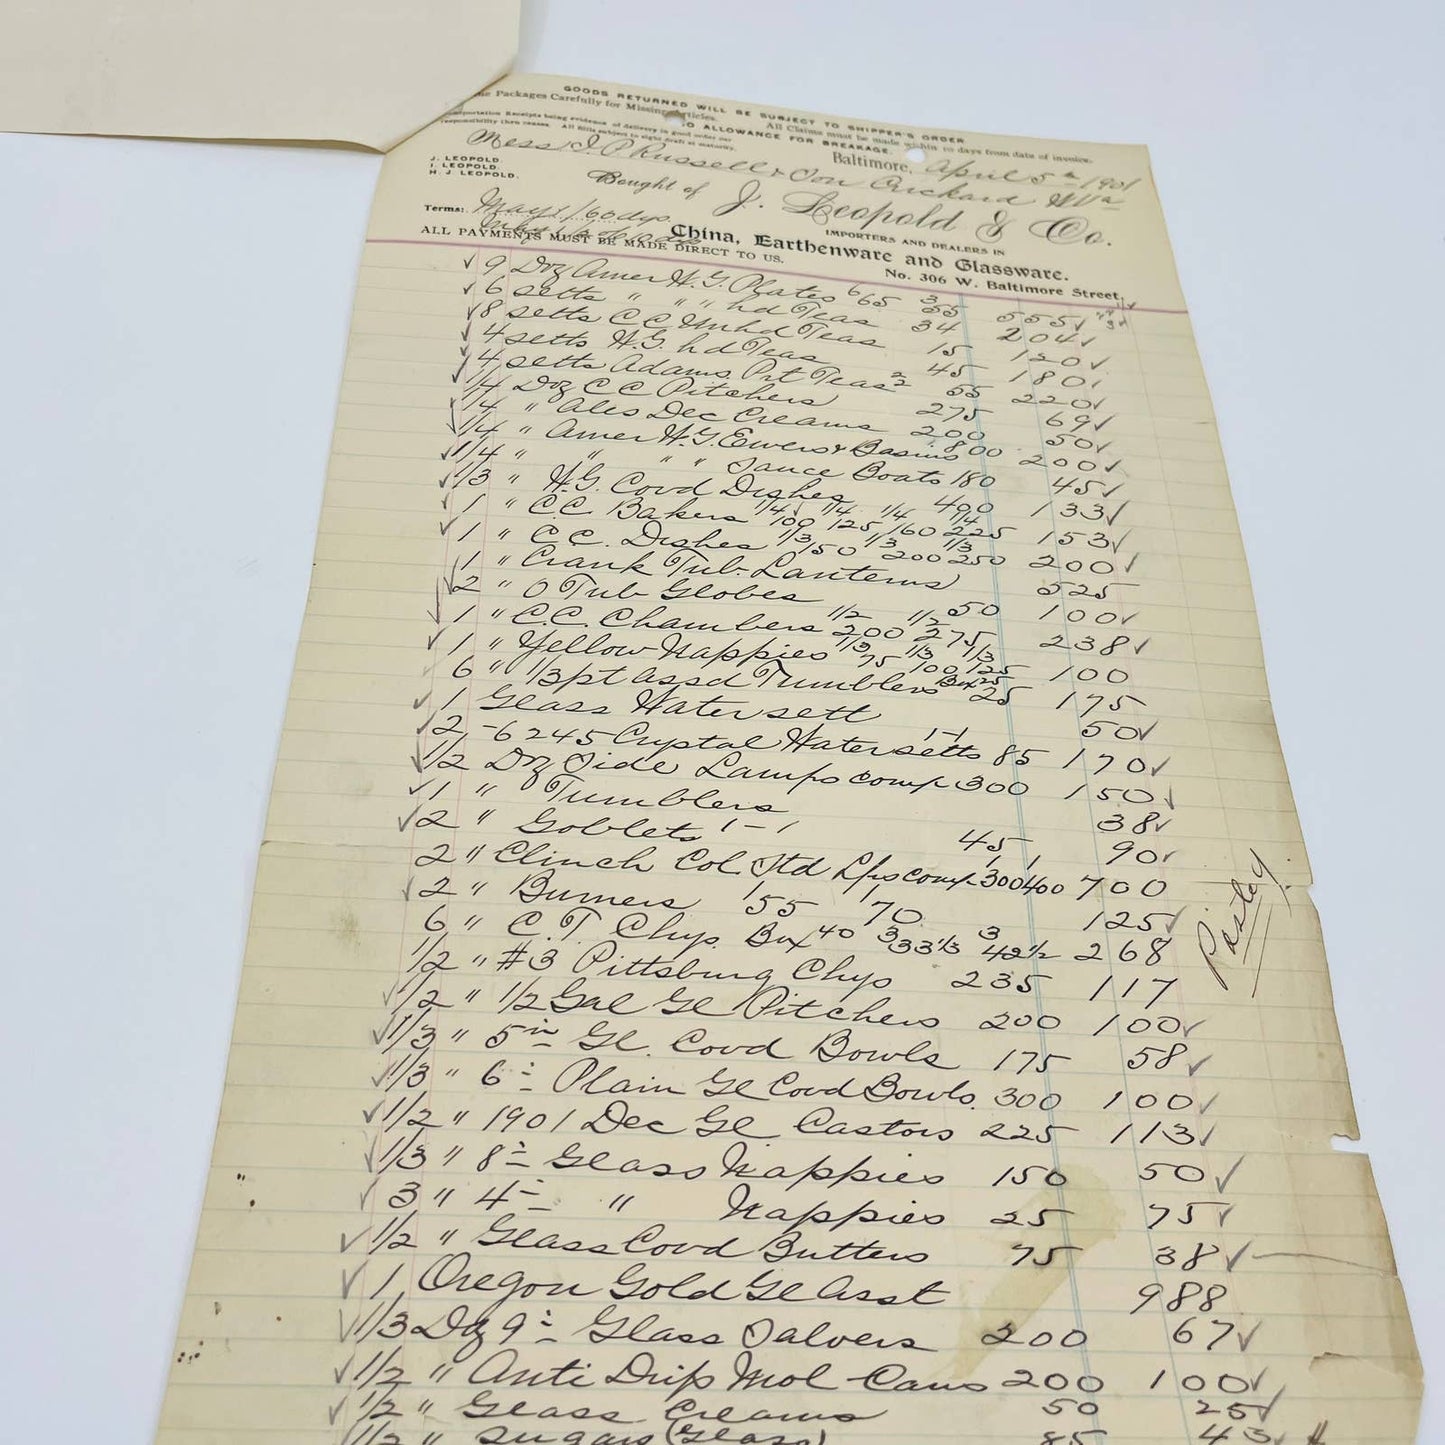 GOODS RETURNED WILL BE SUBJECT TO SHIPPER'S ORDER
Packages Carefully for Missing Articles. All Claims must be made within 10 days from date of invoice.
NO ALLOWANCE FOR BREAKAGE.
Transportation Receipts being evidence of delivery in good order our
responsibility then ceases. All Bills subject to sight draft at maturity.
Baltimore, April 5th 1901
Mess J. P. Russell & Son Orchard W Va
J. LEOPOLD.
I. LEOPOLD.
H. J. LEOPOLD.
Bought of J. Leopold & Co.
IMPORTERS AND DEALERS IN
Terms: May 1/60 dys
China, Earthenware and Glassware.
ALL PAYMENTS MUST BE MADE DIRECT TO US.
No. 306 W. Baltimore Street,
9 Doz Amer W.G. Plates 6/65 3/55 555
6 setts " " " hd Teas 34 204
8 setts C C Unhd Teas 15 120
4 setts W.G. hd Teas 45 180
4 setts Adams Prt Teas 55 220
1/4 Doz C C Pitchers 275 69
1/4 " Ales Dec Creams 200 50
1/4 " Amer W.G. Ewers & Basins 800 200
1/4 " " " " Sauce Boats 180 45
1/3 " W.G. Covd Dishes 400 133
1 " C.C. Bakers 1/4 100 1/4 125 1/4 160 1/4 225 153
1 " C.C. Dishes 1/3 150 1/3 200 1/3 250 200
1 " Crank Tub. Lanterns 525
2 " O Tub Globes 50 100
1 " C.C. Chambers 1/2 200 1/2 275 238
1 " Yellow Nappies 1/3 75 1/3 100 1/3 125 100
6 " 1/3 pt assd Tumblers Box 25 25 175
1 Glass Water sett 50
2 - 6245 Crystal Water setts 1-1 85 170
1/2 Doz Side Lamps comp 300 150
1 " Tumblers 38
2 " Goblets 1-1 45 90
2 " Clinch Col. Std Lps comp 1/300 1/400 700
2 " Burners 1/55 1/70 125
6 " C.T. Chys. Box 40 3/33 1/3 3/42 1/2 268
1/2 " #3 Pittsburg Chys 235 117
1/2 " 1/2 Gal Gl Pitchers 200 100
1/3 " 5 in Gl. Covd Bowls 175 58
1/3 " 6 " Plain Gl Covd Bowls. 300 100
1/2 " 1901 Dec Gl Castors 225 113
1/3 " 8 " Glass Nappies 150 50
3 " 4 " " Nappies 25 75
1/2 " Glass Covd Butters 75 38
1 Oregon Gold Gl Asst 988
1/3 Doz 9 " Glass Salvers 200 67
1/2 " Anti Drip Mol Cans 200 100
1/2 " Glass Creams 50 25
1/2 " Sugars (Glass) 85 43